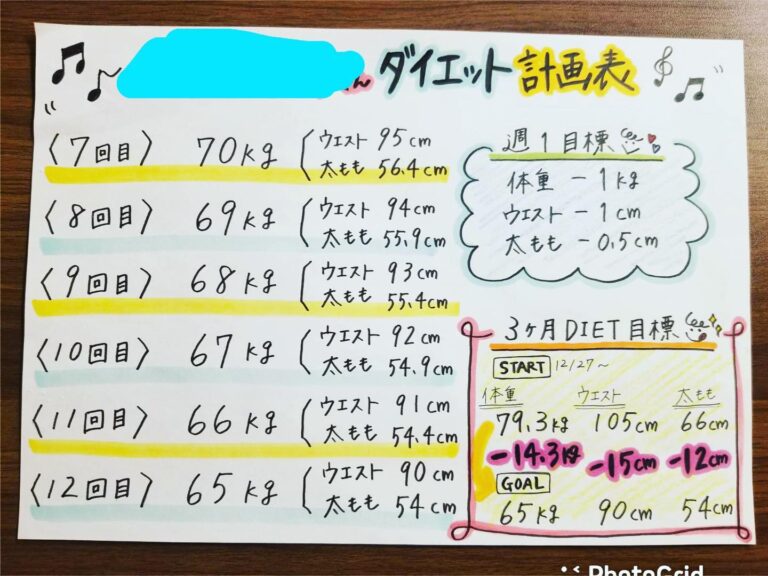 ん ダイエット計画表
〈7回目〉 70kg ウエスト 95cm
太もも 56.4cm
〈8回目〉 69kg ウエスト 94cm
太もも 55.9cm
〈9回目〉 68kg ウエスト 93cm
太もも 55.4cm
〈10回目〉 67kg ウエスト 92cm
太もも 54.9cm
〈11回目〉 66kg ウエスト 91cm
太もも 54.4cm
〈12回目〉 65kg ウエスト 90cm
太もも 54cm
週1目標
体重 -1kg
ウエスト -1cm
太もも -0.5cm
3ヶ月DIET目標
START 12/27~
体重 ウエスト 太もも
79.3kg 105cm 66cm
-14.3kg -15cm -12cm
GOAL
65kg 90cm 54cm
PhotoGrid